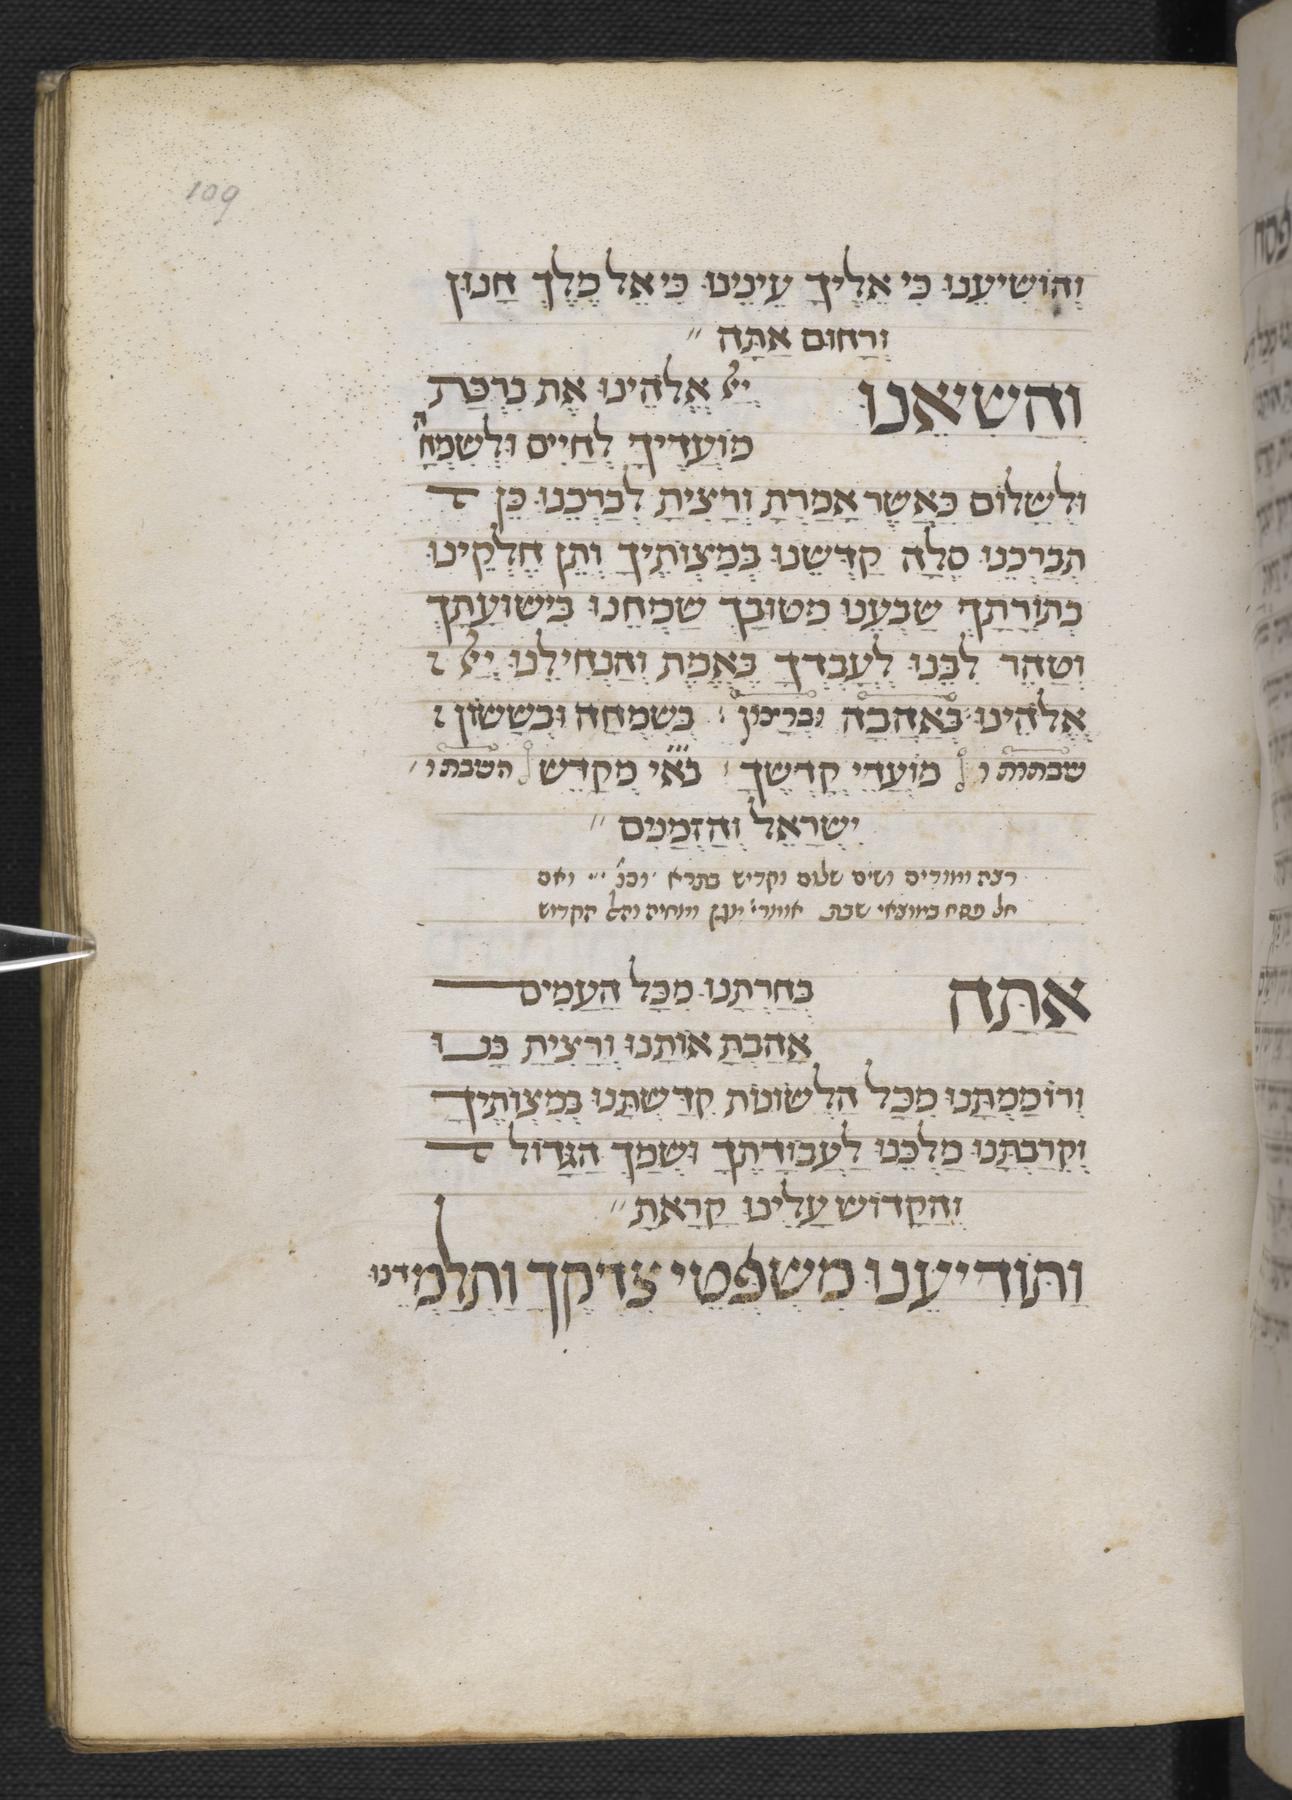 109
והושיענו כי אליך עינינו כי אל מלך חנון
ורחום אתה
והשיאנו יי אלהינו את ברכת
מועדיך לחיים ולשמחה
ולשלום כאשר אמרת ורצית לברכנו כן
תברכנו סלה קדשנו במצותיך ותן חלקינו
בתורתך שבענו מטובך שמחנו בישועתך
וטהר לבנו לעבדך באמת והנחילנו יי
אלהינו באהבה וברצון בשמחה ובששון
שבתות ו מועדי קדשך בא״י מקדש השבת ו
ישראל והזמנים
רצה ומודים ושים שלום וקדיש בתרא וכו׳ ואם
חל פסח במוצאי שבת אומרי׳
אתה בחרתנו מכל העמים
אהבת אותנו ורצית בנו
ורוממתנו מכל הלשונות קדשתנו במצותיך
וקרבתנו מלכנו לעבודתך ושמך הגדול
והקדוש עלינו קראת
ותודיענו משפטי צדיקך ותלמדנו